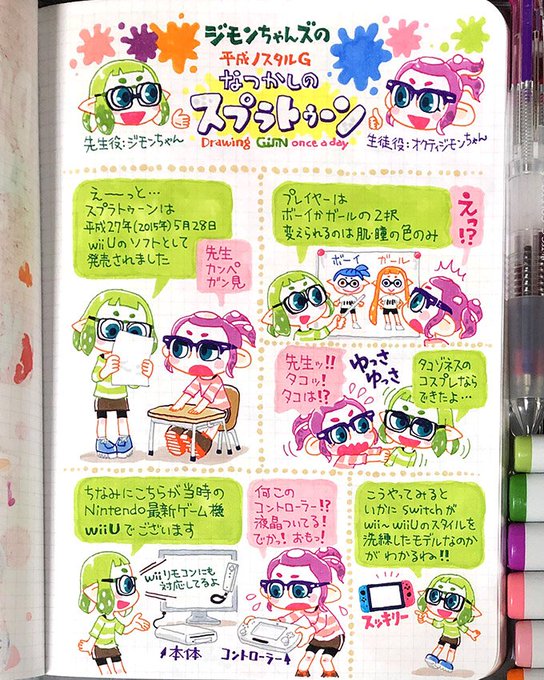 ジモンちゃんズの
平成ノスタルG
なつかしの
スプラトゥーン
Drawing GiMN once a day
先生役:ジモンちゃん
生徒役:オクティジモンちゃん
えーーっと…
スプラトゥーンは
平成27年(2015年)5月28日
wiiUのソフトとして
発売されました
先生
カンペ
ガン見
プレイヤーは
ボーイかガールの2択
変えられるのは肌・瞳の色のみ
えっ!?
ボーイ
ガール
先生ッ!!
タコッ!
タコは!?
ゆっさ
ゆっさ
タコゾネスの
コスプレなら
できたよ…
ちなみにこちらが当時の
Nintendo最新ゲーム機
wiiUでございます
wiiリモコンにも
対応してるよ
↑本体
コントローラー↑
何この
コントローラー!?
液晶ついてる!
でかっ!おもっ!
こうやってみると
いかにSwitchが
wii~wiiUのスタイルを
洗練したモデルなのか
がわかるね!!
スッキリー